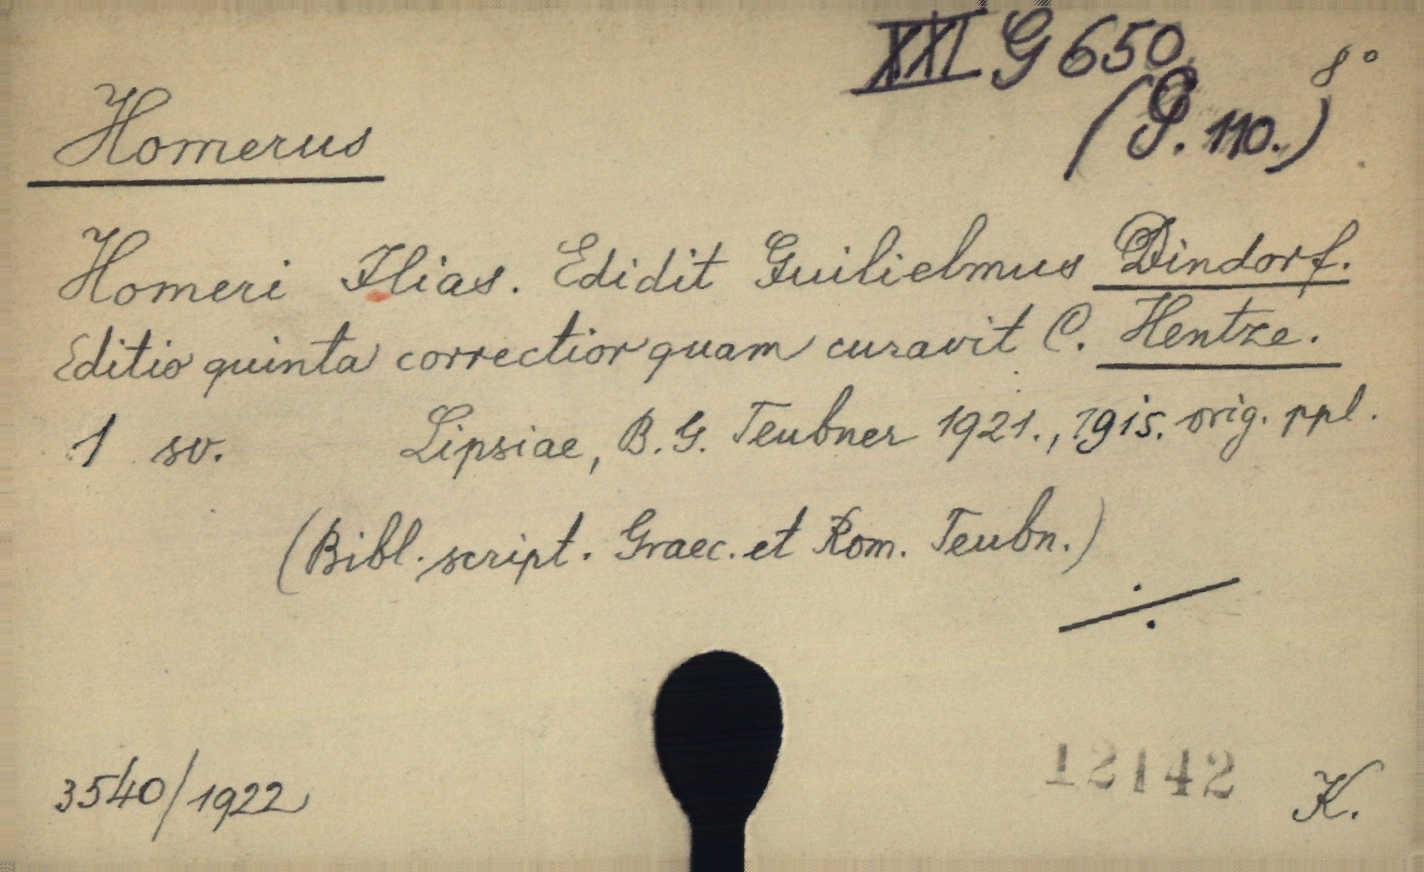 XXI G 650.
8°
(P. 110.)
Homerus
Homeri Ilias. Edidit Guilielmus Dindorf.
Editio quinta correctior quam curavit C. Hentze.
1 sv. Lipsiae, B. G. Teubner 1921., 1915. orig. ppl.
(Bibl. script. Graec. et Rom. Teubn.)
3540/1922
12142
K.